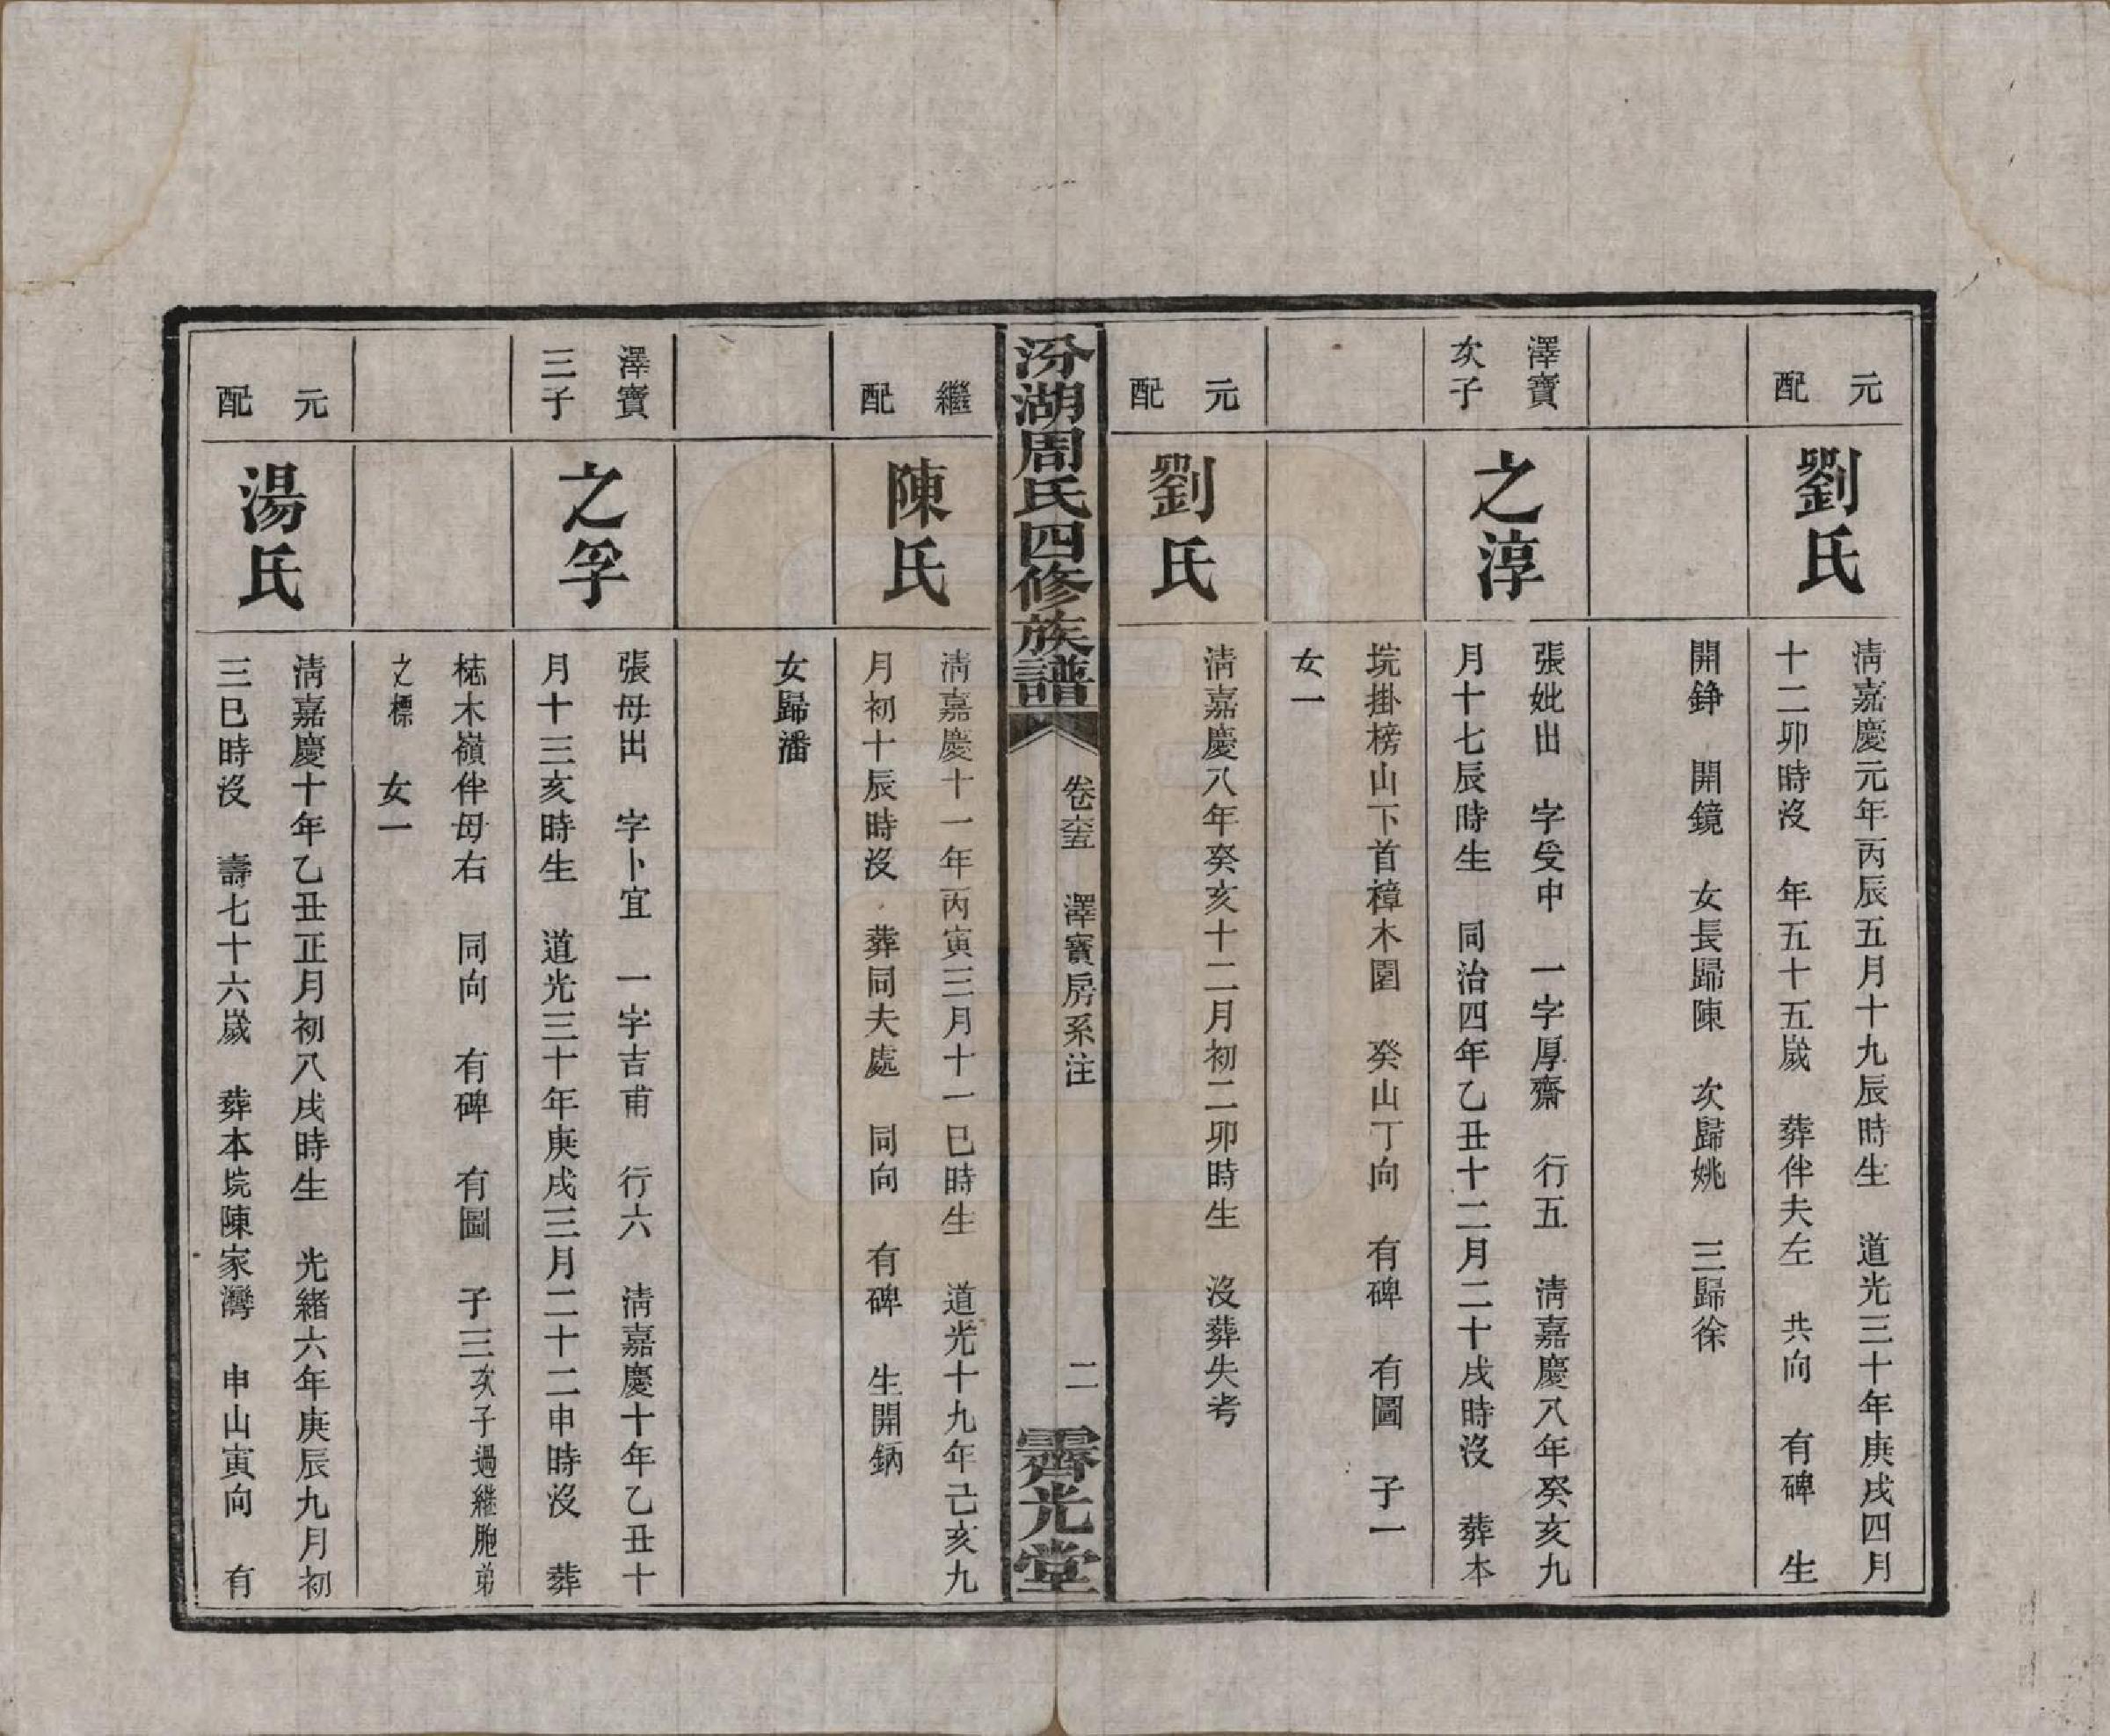 元配
劉氏
清嘉慶元年丙辰五月十九辰時生　道光三十年庚戌四月
十二卯時沒　年五十五歲　葬伴夫左　共向　有碑　生
開錚　開鏡　女長歸陳　次歸姚　三歸徐
澤寶
次子
之淳
張妣出　字受中　一字厚齋　行五　清嘉慶八年癸亥九
月十七辰時生　同治四年乙丑十二月二十戌時沒　葬本
垸掛榜山下首樟木園　癸山丁向　有碑　有圖　子一
女一
元配
劉氏
清嘉慶八年癸亥十二月初二卯時生　沒葬失考
汾湖周氏四修族譜
卷六五　澤寶房系注
二
霽光堂
繼配
陳氏
清嘉慶十一年丙寅三月十一巳時生　道光十九年己亥九
月初十辰時沒　葬同夫處　同向　有碑　生開鈵
女歸潘
澤寶
三子
之孚
張母出　字卜宜　一字吉甫　行六　清嘉慶十年乙丑十
月十三亥時生　道光三十年庚戌三月二十二申時沒　葬
梽木嶺伴母右　同向　有碑　有圖　子三次子過繼胞弟
之標　女一
元配
湯氏
清嘉慶十年乙丑正月初八戌時生　光緒六年庚辰九月初
三巳時沒　壽七十六歲　葬本垸陳家灣　申山寅向　有